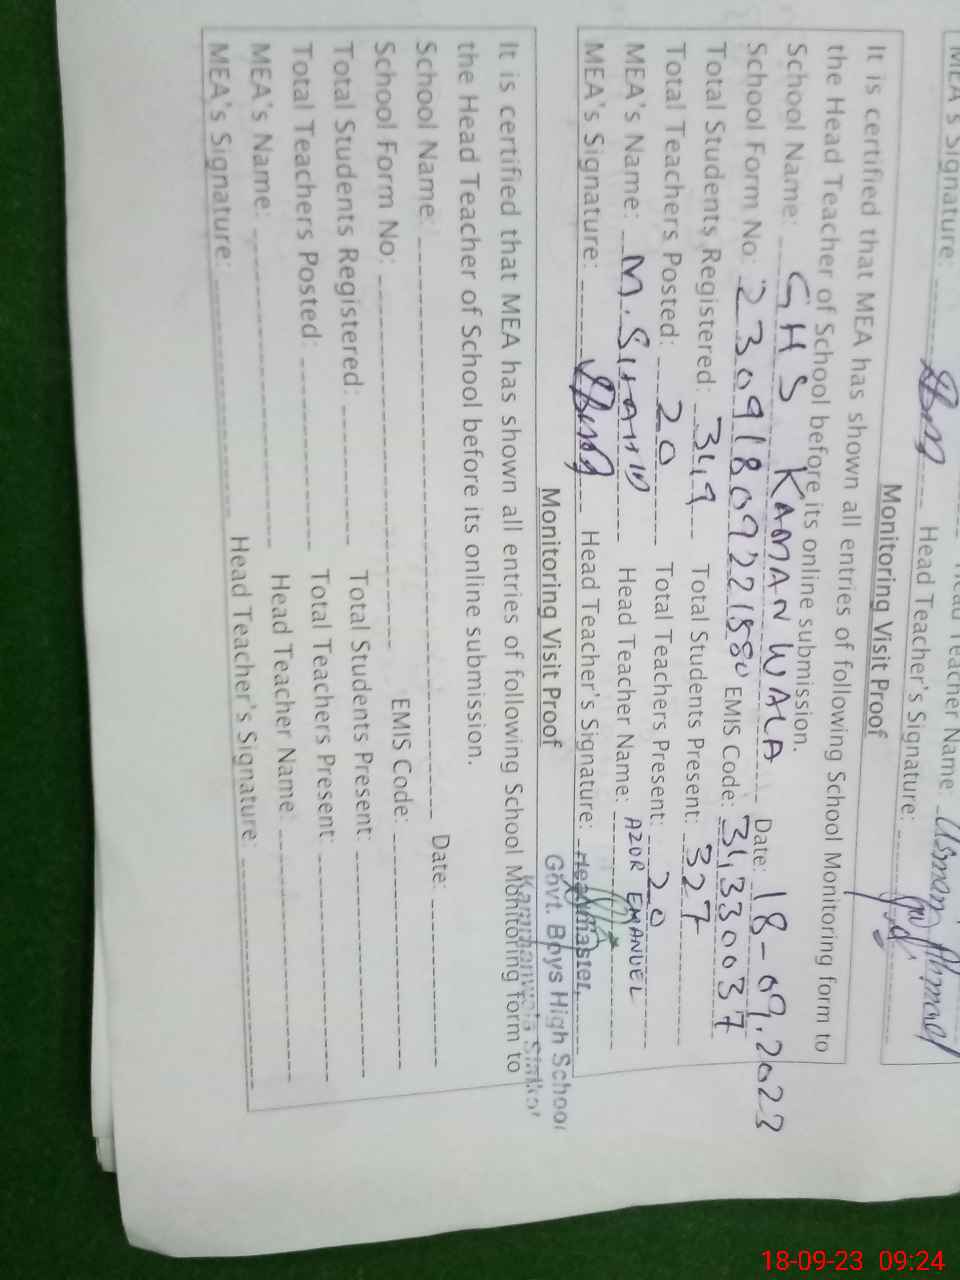 Head Teacher Name: Usman Ahmad
MEA's Signature: Head Teacher's Signature:
Monitoring Visit Proof
It is certified that MEA has shown all entries of following School Monitoring form to
the Head Teacher of School before its online submission.
School Name: GHS KAMANWALA Date: 18-09.2023
School Form No: 23091809221580 EMIS Code: 34330037
Total Students Registered: 349 Total Students Present: 327
Total Teachers Posted: 20 Total Teachers Present: 20
MEA's Name: M. Head Teacher Name: AZOR EMANUEL
MEA's Signature: Head Teacher's Signature:
Headmaster,
Govt. Boys High School
Monitoring Visit Proof
It is certified that MEA has shown all entries of following School Monitoring form to
the Head Teacher of School before its online submission.
School Name: Date:
School Form No: EMIS Code:
Total Students Registered: Total Students Present:
Total Teachers Posted: Total Teachers Present:
MEA's Name: Head Teacher Name:
MEA's Signature: Head Teacher's Signature:
18-09-23 09:24